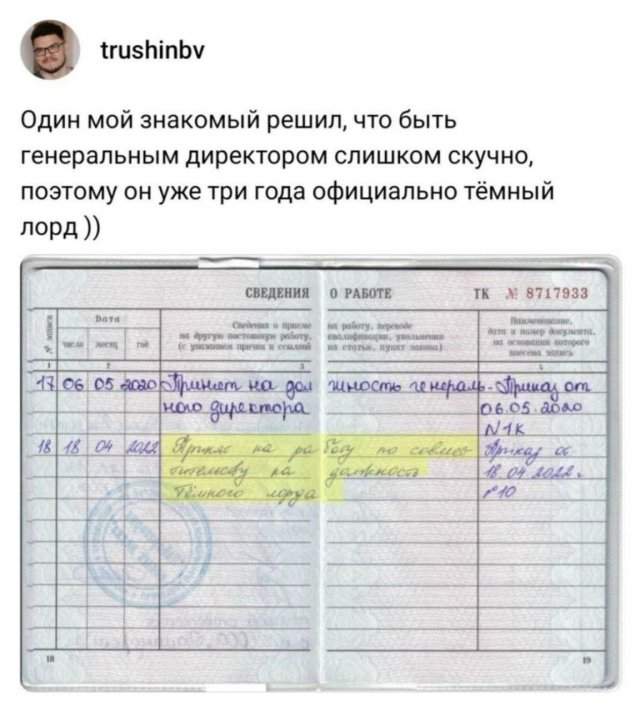 trushinbv
Один мой знакомый решил, что быть
генеральным директором слишком скучно,
поэтому он уже три года официально тёмный
лорд ))
СВЕДЕНИЯ О РАБОТЕ ТК № 8717933
№ записи
Дата
Сведения о приеме на работу, переводе
на другую постоянную работу, квалификации, увольнении
(с указанием причин и ссылкой на статью, пункт закона)
Наименование,
дата и номер документа,
на основании которого
внесена запись
число месяц год
1 2 3 4
17 06 05 2020 Принят на должность генераль- Приказ от
ного директора 06.05.2020
N1К
18 18 04 2022 Принят на работу по совмес- Приказ от
тительству на должность 18.04.2022.
Тёмного лорда №10
18 19